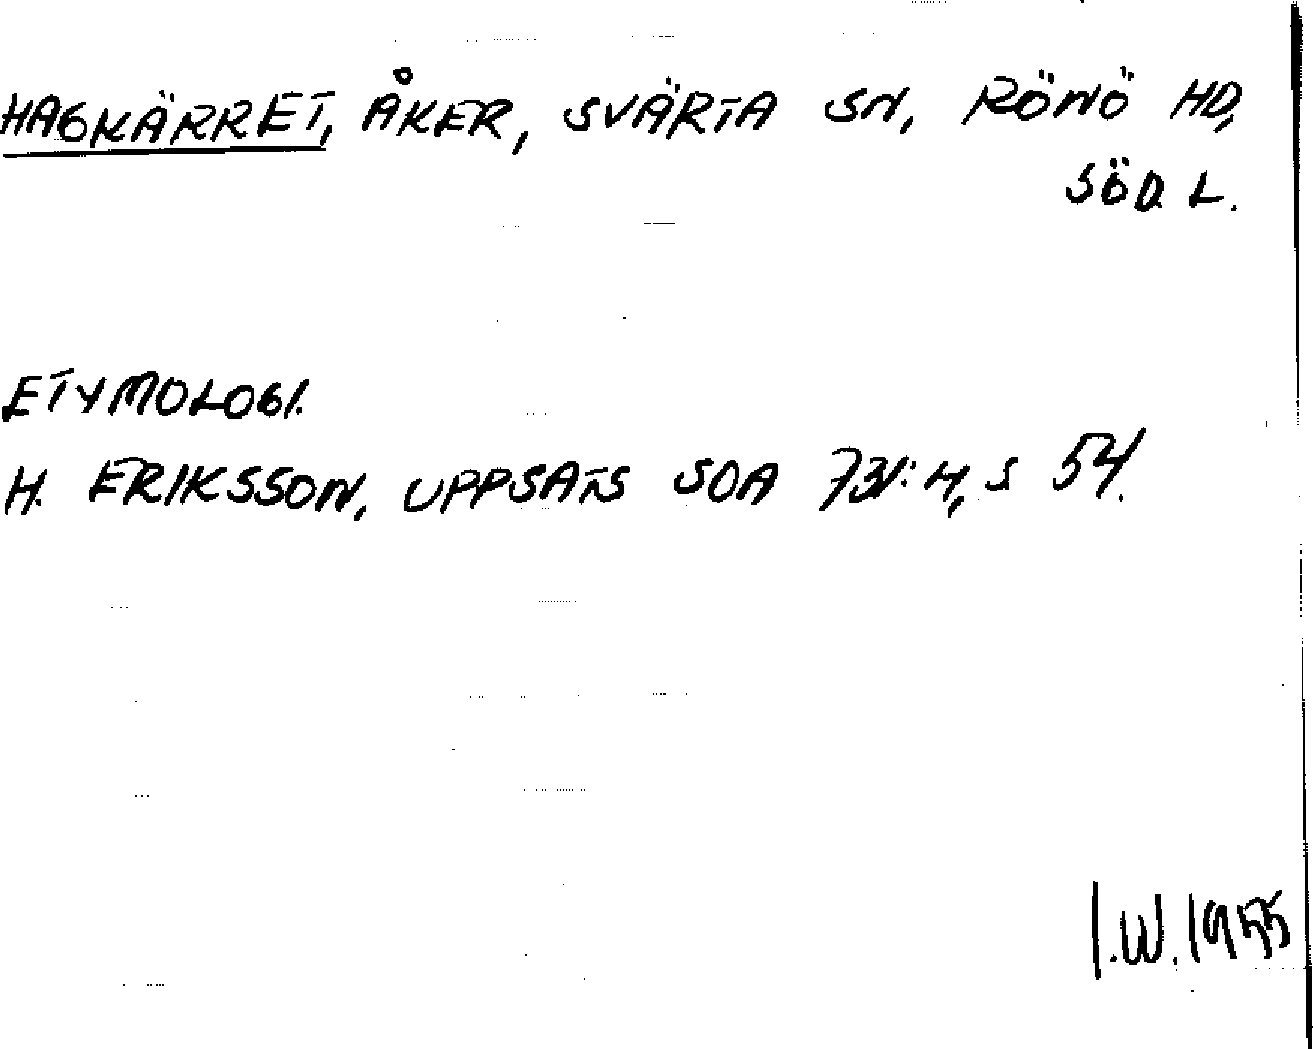 HAGKÄRRET, ÅKER, SVÄRTA SN, RÖNÖ HD,
SÖD. L.
ETYMOLOGI.
H. ERIKSSON, UPPSATS SOA 731:H, S 54.
I.W. 1955